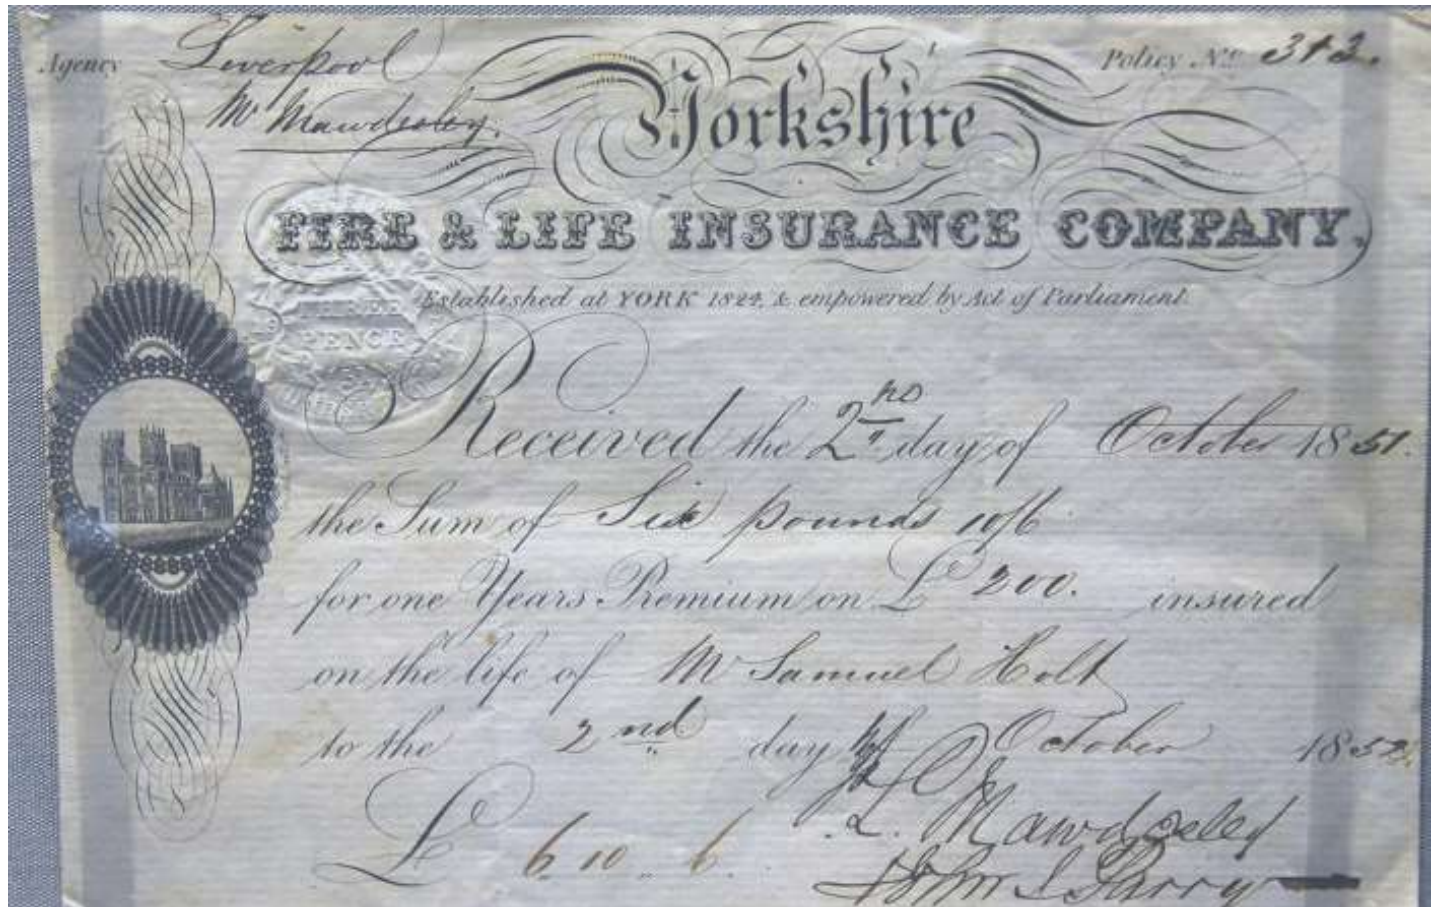 Agency Liverpool Policy No. 313.
Mr Mawdesley.
Yorkshire
FIRE & LIFE INSURANCE COMPANY,
Established at YORK 1824, & empowered by Act of Parliament.
PENCE
Received the 2nd day of October 1851.
the Sum of Six pounds 10/6
for one Years Premium on £ 200. insured
on the life of Mr Samuel Holt
to the 2nd day of October 1852
£ 6 10 6
L. Mawdesley